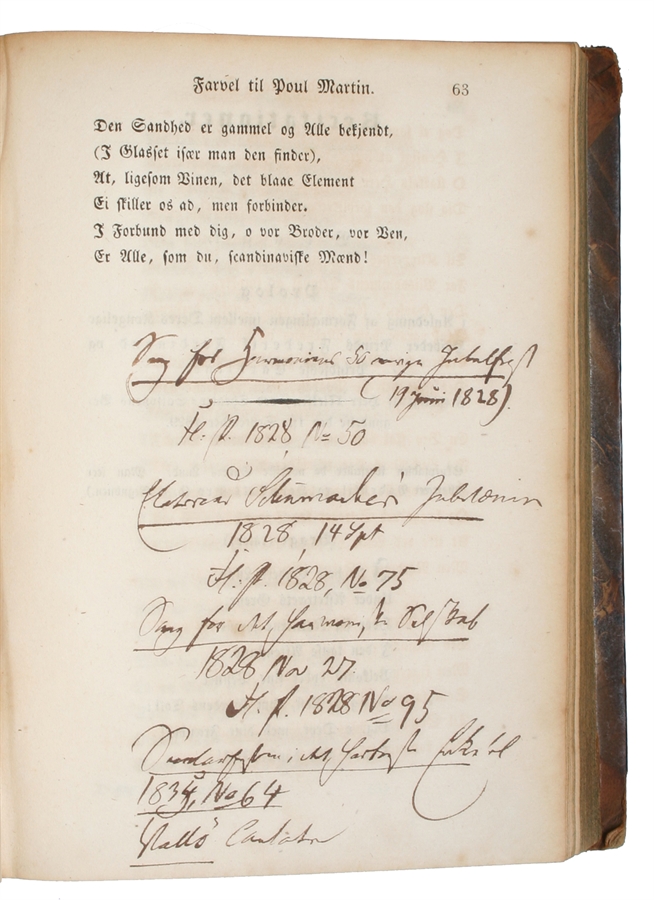 Farvel til Poul Martin. 63
Den Sandhed er gammel og Alle bekjendt,
(I Glasset især man den finder),
At, ligesom Vinen, det blaae Element
Ei skiller os ad, men forbinder.
I Forbund med dig, o vor Broder, vor Ven,
Er Alle, som du, scandinaviske Mænd!
Sang for Harmoniens 50 aarige Jubelfest
(19 Juni 1828).
H. P. 1828 No 50
Etatsraad Schumachers
1828 14 Spt
H. P. 1828, No 75
Sang for det Selskab
1828 Nov 27.
H. P. 1828 No 95
i det
1834, No 64
Vallö Cantate